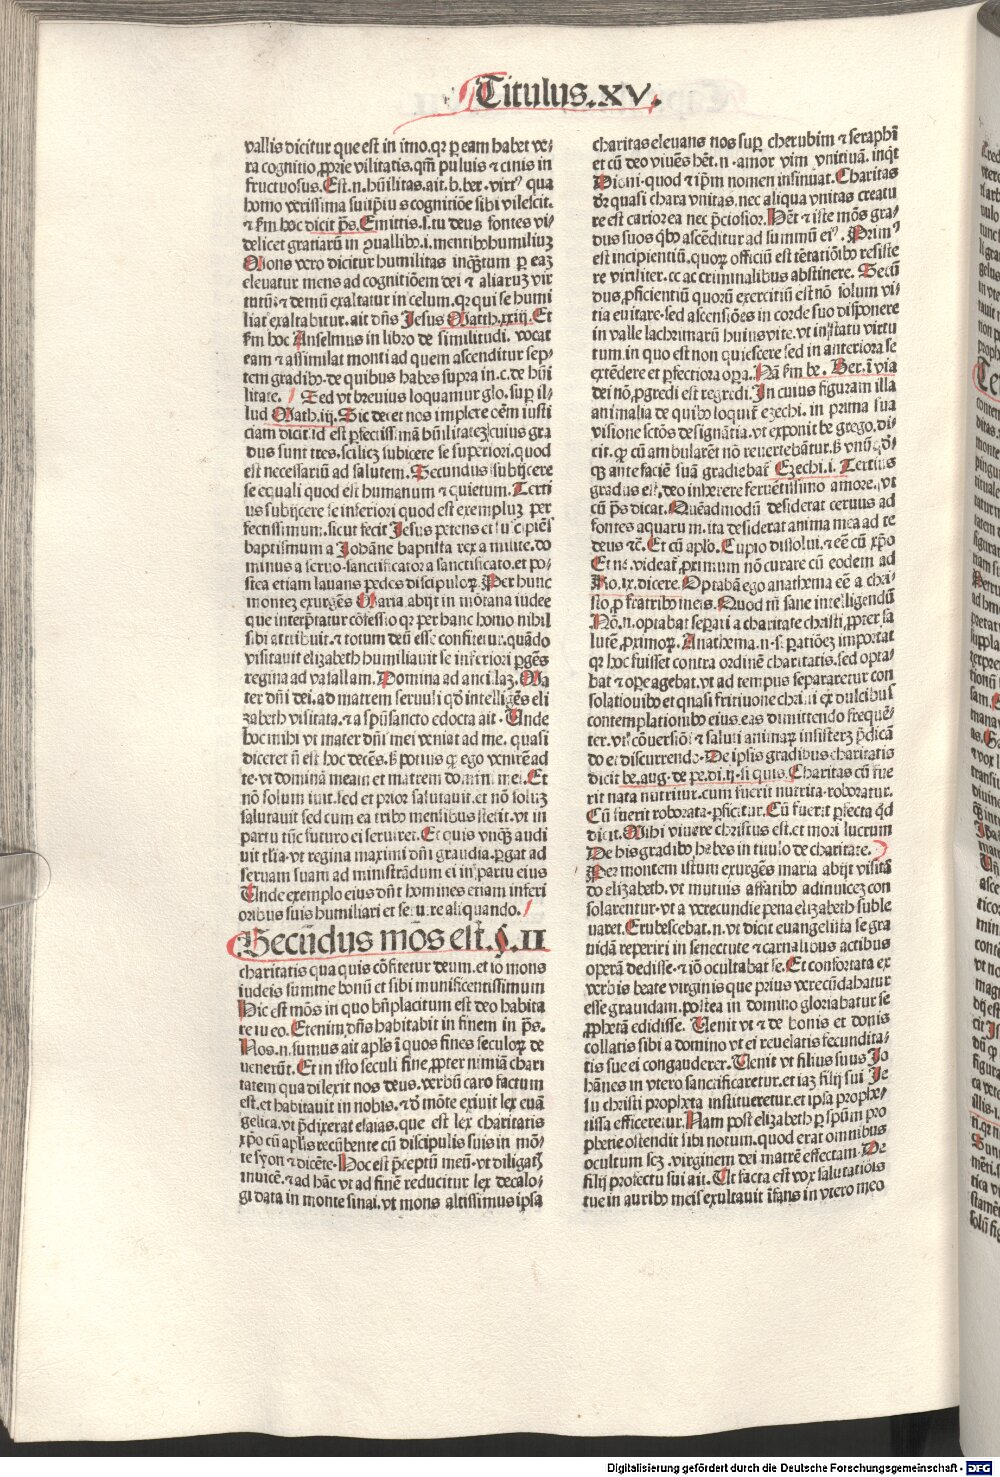 Titulus.XV.
vallis dicitur que est in imo.qꝛ ꝑ eam habet ve⸗
ra cognitio ꝓprie vilitatis.qm̄ puluis ⁊ cinis in
fructuosus.Est.n.hūilitas.ait.b.ber.virtꝰ qua
homo verissima suiipiuˢ cognitiōe sibi vilescit.
⁊ ẜm hoc dicit p̄s.Emittis.s.tu deus fontes vi⸗
delicet gratiarū in ꝯuallibꝰ.i.mentibꝰ humiliuꝫ
Mons vero dicitur humilitas inqꝫtum ꝑ eaꝫ
eleuatur mens ad cognitiōem dei ⁊ aliaruꝫ vir
tutū:⁊ demū exaltatur in celum.qꝛ qui se humi
liat exaltabitur.ait dn̄s Jesus Matth.xxiij.Et
ẜm hoc Anselmus in libro de similitudi. vocat
eam ⁊ assimilat monti ad quem ascenditur sep⸗
tem gradibꝰ.de quibus habes supra in.c.de hūi
litate. Sed vt breuius loquamur glo.suꝑ il⸗
lud Math.iij.Sic decet nos implere oēm iusti
ciam dicit.id est ꝑfectissimā hūilitateꝫ cuius gra
dus sunt tres.scilicꝫ subicere se superiori.quod
est necessariū ad salutem.Secundus subijcere
se equali quod est humanum ⁊ quietum.Terti
us subijcere se inferiori quod est exempluꝫ per
fectissimum.sicut fecit Jesus petens et suscipiēs
baptismum a Johāne baptista rex a milite.do
minus a seruo.sanctificator a sanctificato.et po⸗
stea etiam lauans pedes discipuloꝝ.Per hunc
monteꝫ exurgēs Maria abijt in mōtana iudee
que interp̄tatur cōfessio qꝛ per hanc homo nihil
sibi attribuit.⁊ totum deū esse confitetur.quādo
visitauit elizabeth humiliauit se inferiori ꝑgēs
regina ad vasallam.Domina ad ancillaꝫ.Ma
ter dn̄i dei.ad matrem serui.qd̄ intelligēs eli
zabeth visitata.⁊ a spūsancto edocta ait.Unde
hoc mihi vt mater dn̄i mei veniat ad me. quasi
diceret nō est hoc decēs.ẜ potius qꝙ ego venirē ad
te.vt dominā meam et matrem domini mei.Et
nō solum iuit.sed et prior salutauit.et nō soluꝫ
salutauit sed cum ea tribꝰ mensibus stetit.vt in
partu tūc futuro ei seruiret.Et quis vnqꝫ audi
uit talia.vt regina maximi dn̄i grauida.ꝑgat ad
seruam suam ad ministrādum ei in partu eius
Unde exemplo eius dn̄t homines etiam inferi
oribus suis humiliari et seruire aliquando.
Secūdus mōs est.§.II
charitatis qua quis cōfitetur deum.et iō mons
iudeis summe bonū et sibi munificentissimum
Hic est mōs in quo bn̄placitum est deo habita
re in eo.Etenim dn̄s habitabit in finem in p̄s.
Nos.n.sumus ait apl̄s ī quos fines seculoꝝ de
uenerūt.Et in isto seculi fine ꝓpter nimiā chari
tatem qua dilexit nos deus.verbū caro factum
est.et habitauit in nobis.⁊ d̄ mōte exiuit lex euā
gelica.vt p̄dixerat esaias.que est lex charitatis
xp̄o cū apl̄is recūbente cū discipulis suis in mō⸗
te syon ⁊ dicēte.Hoc est p̄ceptū meū.vt diligatꝭ
inuicē.⁊ ad hāc vt ad finē reducitur lex decalo⸗
gi data in monte sinai.vt mons altissimus ipsa
charitas eleuans nos suꝑ cherubim ⁊ seraphī
et cū deo viuēs hēt.n.amor vim vnitiuā.inqͥt
Dioni.quod ⁊ ip̄m nomen insinuat.Charitas
dꝛ quasi chara vnitas.nec aliqua vnitas creatu
re est carior ea nec p̄ciosior.Hēt ⁊ iste mōs gra⸗
dus suos qͥbꝰ ascēditur ad summū eiꝰ.Primꝰ
est incipientiū.quoꝝ officiū est tētatiōibꝰ resiste
re viriliter.⁊ a criminalibus abstinere. Secū
dus ꝓficientiū quorū exercitiū est nō solum vi⸗
tia euitare.sed ascensiōes in corde suo disponere
in valle lachrimarū huius vite.vt in statu virtu
tum.in quo est non quiescere sed in anteriora se
extēdere et ꝑfectiora oꝑa.Nā ẜm be. Ber.ī via
dei nō ꝓgredi est regredi.In cuius figuram illa
animalia de quibꝰ loquit̄ ezechi. in prima sua
visione sctōs designātia.vt exponit be.grego.di⸗
cit.qꝙ cū ambularēt nō reuertebātur.ẜ vnū qd̄⸗
qꝫ ante faciē suā gradiebat̄ Ezechi.i. Tertius
gradus est.deo inherere feruētissimo amore.vt
cū p̄s dicat.Quēadmodū desiderat ceruus ad
fontes aquarum.ita desiderat anima mea ad te
deus ⁊c̄.Et cū apl̄o.Cupio dissolui.⁊ eē cū xp̄o
Et ne videat̄ ꝓximum nō curare cū eodem ad
Ro.ix.dicere.Optabā ego anathema eē a chri⸗
sto.ꝓ fratribꝰ meis.Quod tn̄ sane intelligendū
Nō.n.optabat seꝑari a charitate christi ꝓpter sa
lutē ꝓximoꝝ.Anathema.n.seꝑatiōeꝫ importat
qꝛ hoc fuisset contra ordinē charitatis.sed opta⸗
bat ⁊ oꝑe agebat.vt ad tempus separaretur con
solationibꝰ et quasi fruitione christi ex dulcibus
contemplationibꝰ eius.eas dimittendo frequē⸗
ter.vt cōuersiōi ⁊ saluti animaꝝ insisteret p̄dicā
do et discurrendo.De ipsis gradibus charitatis
dicit be.aug.de pe.di.ij.si quis.Charitas cū fue
rit nata nutritur.cum fuerit nutrita.roboratur.
Cū fuerit roborata.ꝑficitur.Cū fuerit ꝑfecta qͥd
dicit.Mihi viuere christus est.et mori lucrum
De his gradibꝰ habes in titulo de charitate.
Per montem istum exurgēs maria abijt visitā
do elizabeth.vt mutuis affatibꝰ adinuiceꝫ con
solarentur.vt a verecundie pena elizabeth suble
uaret.Erubescebat.n.vt dicit euangelista se gra
uidā reperiri in senectute ⁊ carnalibus actibus
operā dedisse.⁊ iō ocultabat se.Et confortata ex
verbis beate virginis que prius verecūdabatur
esse grauidam.postea in domino gloriabatur se
ꝓphetā edidisse. Uenit vt ⁊ de bonis et donis
collatis sibi a domino vt ei reuelatis fecundita⸗
tis sue ei congauderet.Uenit vt filius suus Jo
hānes in vtero sanctificaretur.et iaꝫ filij sui Je
su christi propheta institueretur.et ipsa prophe⸗
tissa efficeretur.Nam post elizabeth ꝑ spūm pro
phetie ostendit sibi notum.quod erat omnibus
ocultum scꝫ .virginem dei matrē effectam.De
filij profectu sui ait.Ut facta est vox salutatiōis
tue in auribꝰ meis exultauit īfans in vtero meo
Digitalisierung gefördert durch die Deutsche Forschungsgemeinschaft - DFG